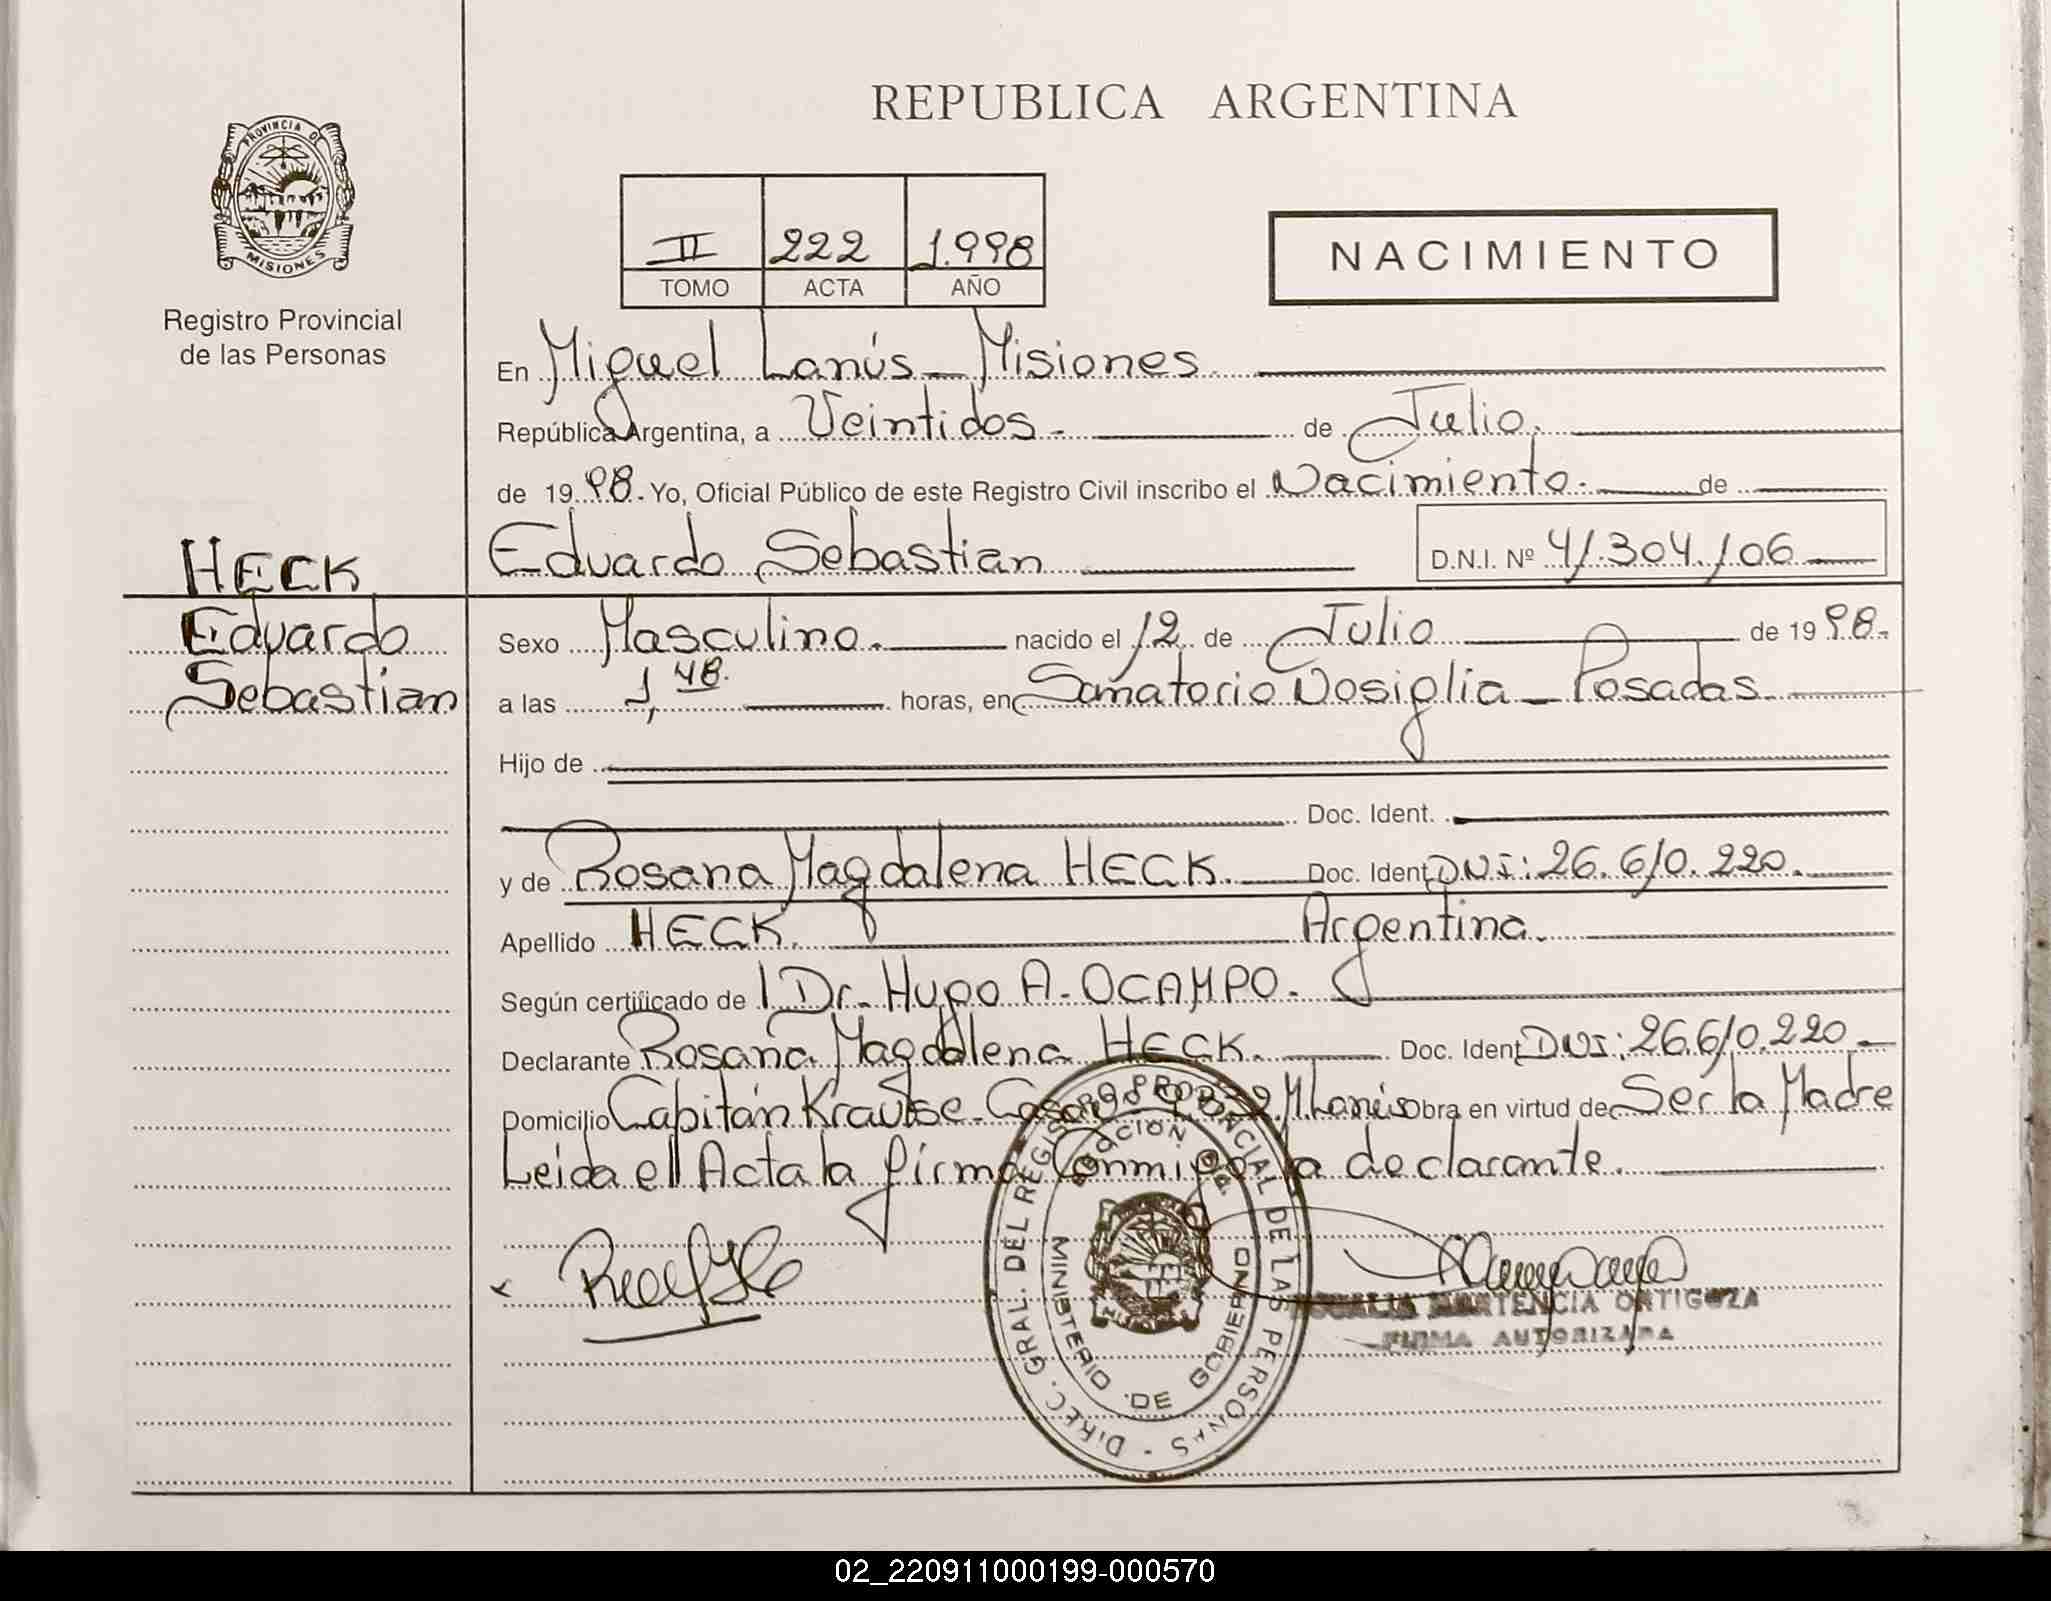 REPUBLICA ARGENTINA
PROVINCIA DE
MISIONES
Registro Provincial
de las Personas
II 222 1.998
TOMO ACTA AÑO
NACIMIENTO
En Miguel Lanús - Misiones
República Argentina, a Veintidos - de Julio.
de 1998. Yo, Oficial Público de este Registro Civil inscribo el Nacimiento. de
HECK
Eduardo Sebastian D.N.I. Nº 41.304.106
Eduardo
Sebastian
Sexo Masculino. nacido el 12 de Julio de 1998.
a las 1,48. horas, en Sanatorio Nosiglia - Posadas
Hijo de
Doc. Ident.
y de Rosana Magdalena HECK. Doc. Ident DNI: 26.610.220.
Apellido HECK. Argentina.
Según certificado de l Dr. Hugo A. OCAMPO.
Declarante Rosana Magdalena HECK. Doc. Ident DNI: 26.610.220
Domicilio Capitán Krautse - Casa M. Lanús Obra en virtud de Ser la Madre
Leida el Acta la firma Conmigo la declarante.
DIREC. GRAL. DEL REGISTRO PROVINCIAL DE LAS PERSONAS
MINISTERIO DE GOBIERNO
ORTIGOZA
FIRMA AUTORIZADA
02_220911000199-000570